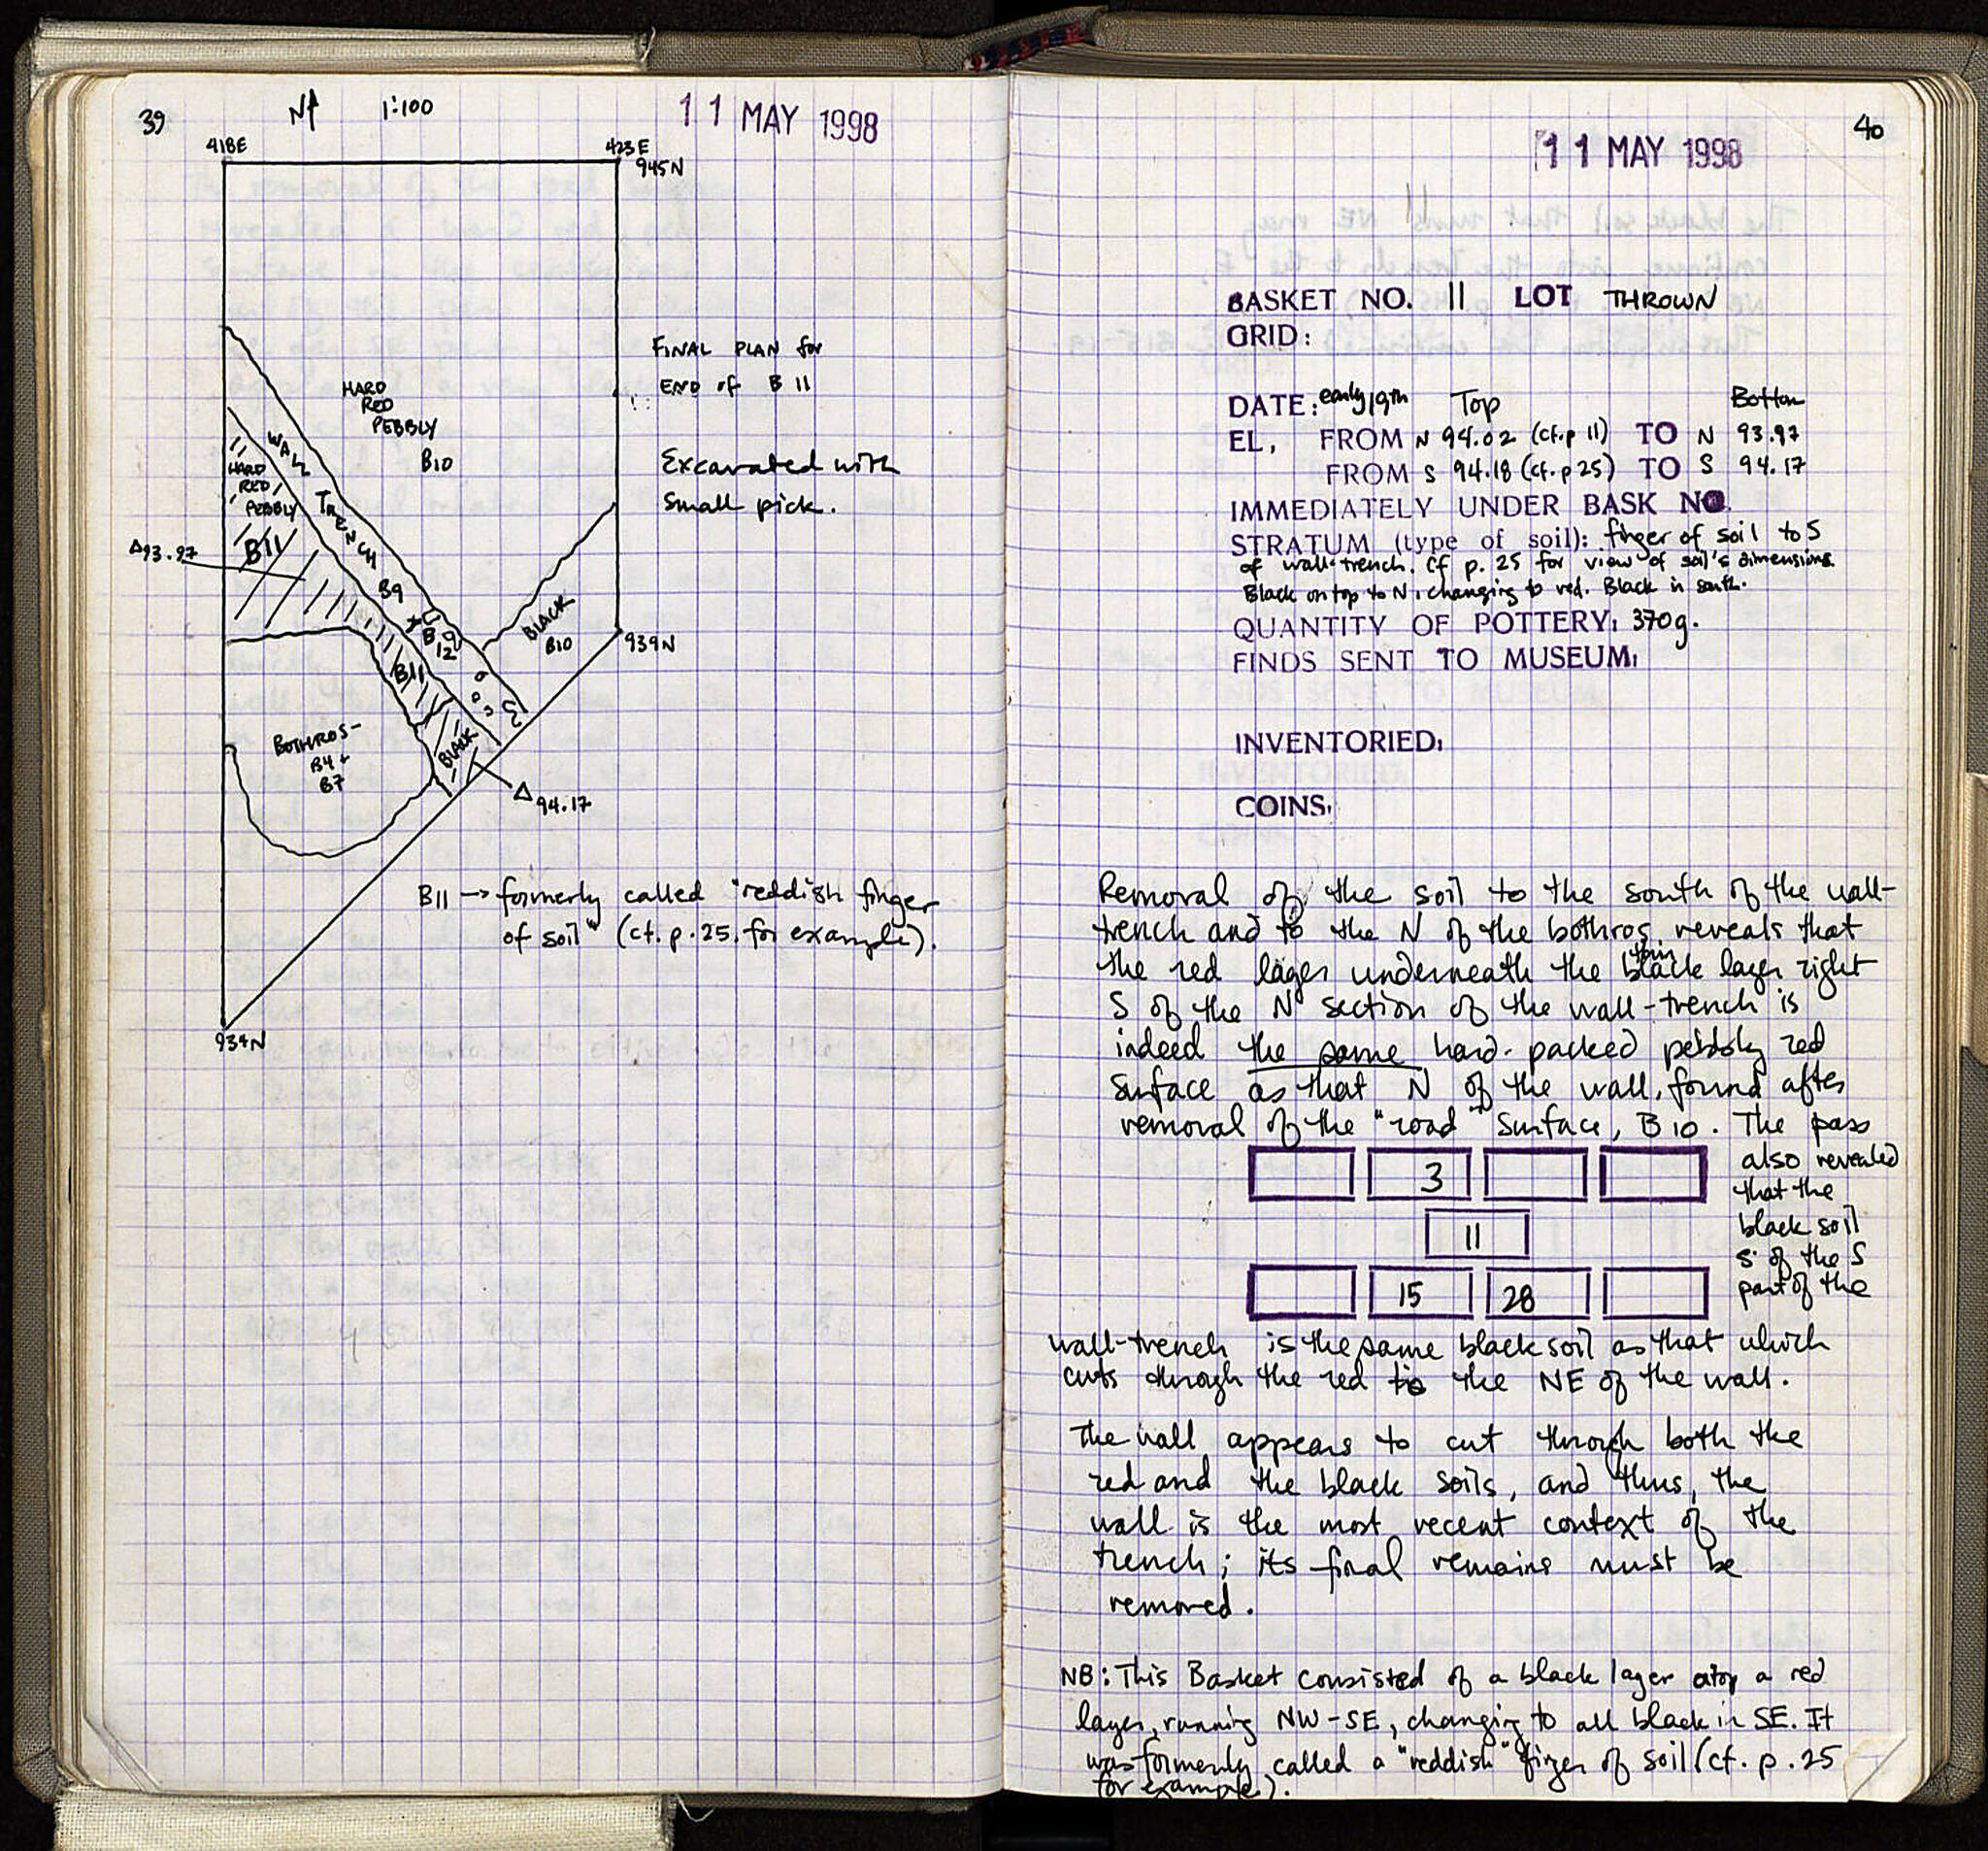 39
N
1:100
11 MAY 1998
418E
423E
945N
FINAL PLAN for
END of B 11
HARD
RED
PEBBLY
B10
WALL
TRENCH
HARD
RED
PEBBLY
B11
Excavated with
Small pick.
Δ93.97
B9
B
12
BLACK
B10
939N
B11
BLACK
BOTHROS-
B4+
B7
Δ94.17
B11 → formerly called "reddish finger
of soil" (cf. p. 25, for example).
934N
40
11 MAY 1998
BASKET NO. 11 LOT THROWN
GRID:
DATE: early 19th Top Bottom
EL, FROM N 94.02 (cf. p 11) TO N 93.97
FROM S 94.18 (cf. p 25) TO S 94.17
IMMEDIATELY UNDER BASK NO.
STRATUM (type of soil): finger of soil to S
of wall-trench. Cf p. 25 for view of soil's dimensions.
Black on top to N, changing to red. Black in south.
QUANTITY OF POTTERY: 370g.
FINDS SENT TO MUSEUM:
INVENTORIED:
COINS:
Removal of the soil to the south of the wall-
trench and to the N of the bothros reveals that
the red layer underneath the thin black layer right
S of the N section of the wall-trench is
indeed the same hard-packed pebbly red
surface as that N of the wall, found after
removal of the "road" surface, B10. The pass
also revealed
that the
black soil
S of the S
part of the
3
11
15 28
wall-trench is the same black soil as that which
cuts through the red to the NE of the wall.
The wall appears to cut through both the
red and the black soils, and thus, the
wall is the most recent context of the
trench; its final remains must be
removed.
NB: This Basket consisted of a black layer atop a red
layer, running NW-SE, changing to all black in SE. It
was formerly called a "reddish" finger of soil (cf. p. 25
for example).